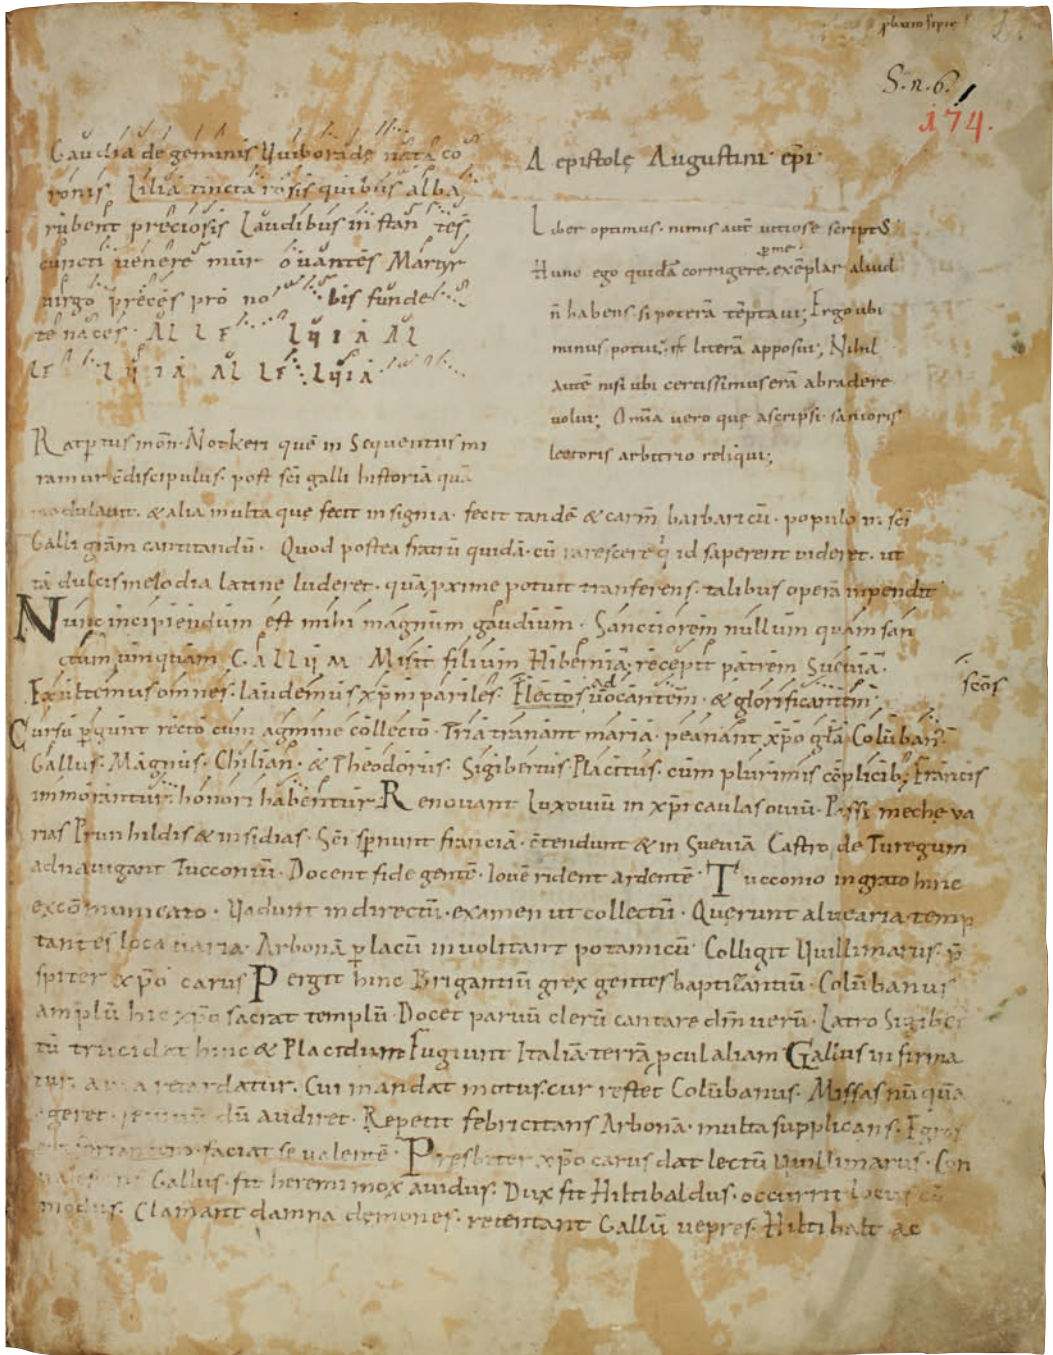 S. n. 6.
174.
Gaudia de geminis Uuiboradę nata co
ronis Lilia tincta rosis quibus alba
rubent preciosis Laudibus in stan tes
cuncti uenere mur ouantes Martyr
uirgo preces pro no bis funde
te naces. AL L E L ų I A AL
LE L ų I A AL LE LųIA
A epistolę Augustini ep̅i
Liber optimus. nimis aut̅ uitiose scriptus
per me
Hunc ego quida̅ corrigere. exe̅plar aliud
n̅ habens. si potera̅ te̅ptaui; Ergo ubi
minus potui. r̅ litera̅ apposui; Nihil
aute̅ nisi ubi certissimus era̅ abradere
volui; Om̅ia vero quę ascripsi. sanioris
lectoris arbitrio reliqui;
Ratp̅tus mon̅. Notkeri que̅ in Sequentiis mi
ramur c̅discipulus. post sc̅i galli historia̅ qua̅
modulauit. & alia multa quę fecit insignia. fecit tande̅ & carm̅ barbaricu̅. populo in sc̅i
Galli gla̅m cantitandu̅. Quod postea fratru̅ quida̅. cu̅ rarescere q id saperent uideret. ut
ta̅ dulcis melodia latine luderet. qua̅ pxime potuit tranferens. talibus opera̅ inpendit
Nunc incipiendum est mihi magnum gaudium. Sanctiorem nullum quam san
ctum umquam GALLųM Misit filium Hibernia; recepit patrem Sueuia.
Exultemus omnes. laudemus xp̅m pariles. Electos uocantem. & glorificantem.
ad
sc̅os
Cursu pgunt recto cum agmine collecto. Tria tranant maria. peanant xp̅o gl̅a Colu̅ban.
Gallus. Magnus. Chilian. & Theodorus. Sigibertus. Placitus. cum plurimis co̅plicib; Francis
immorantur. honori habentur. Renouant Luxouiu̅ in xp̅i caulas ouiu̅. Passi męchę va
rias Prunhildis & insidias. Sc̅i sp̅nunt francia̅. c̅tendunt & in Sueuia̅ Castro de Turegum
adnauigant Tucconiu̅. Docent fide gente̅. Ioue̅ rident ardente̅. Tucconio ingrato hinc
exco̅municato. Uadunt in directu̅. examen ut collectu̅. Quęrunt aluearia. temp
tantes loca uaria. Arbona̅ p lacu̅ inuolitant potamicu̅. Colligit Uuillimarus. p̅
spiter xp̅o carus Pergit hinc Brigantiu̅ grex gentes baptizantiu̅. Colu̅banus
amplu̅ hic xp̅o sacrat templu̅. Docet paruu̅ cleru̅ cantare dm̅ ueru̅. Latro Sigiber
tu̅ trucidat hinc & Placidum Fugiunt Italia̅. terra̅ pcul aliam Gallus infirma
tur. a retardatur. Cui mandat motus. cur restet Colu̅banus. Missas nu̅qua̅
ageret. du̅ audiret. Repetit febricitans Arbona̅. multa supplicans. Egrot
faciat se ualente̅. Presbiter xp̅o carus dat lectu̅ Uuillimarus. Con
Gallus. fit heremi mox auidus. Dux fit Hiltibaldus. occurrit locus
modus. Clamant damna dęmones. retentant Gallu̅ uepres. Hiltibalt ac